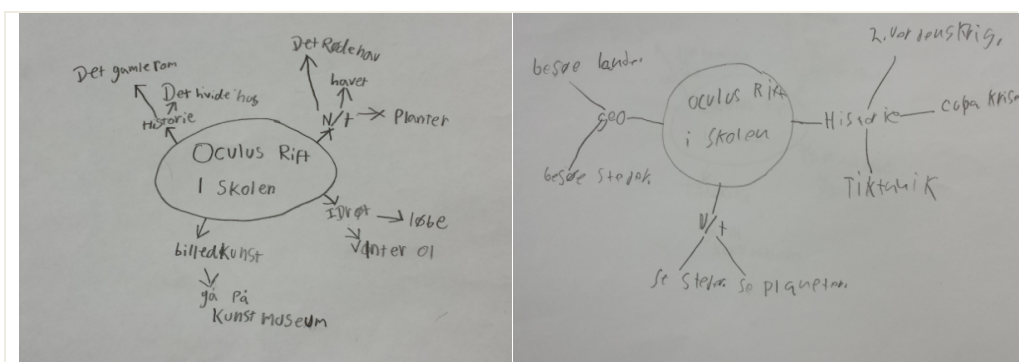 Det gamle rom
Det hvide hus
Historie
Det Røde hav
havet
N/t
Planter
Oculus Rift
I Skolen
IDræt
løbe
Vinter Ol
billedKunst
gå på
Kunst museum
besøe lande.
geo
besøe Steder.
OCULUS Rift
i skolen
2. verdenskrig.
Historie
cuba Krise
Tiktanik
N/t
se Steder.
se planeter.